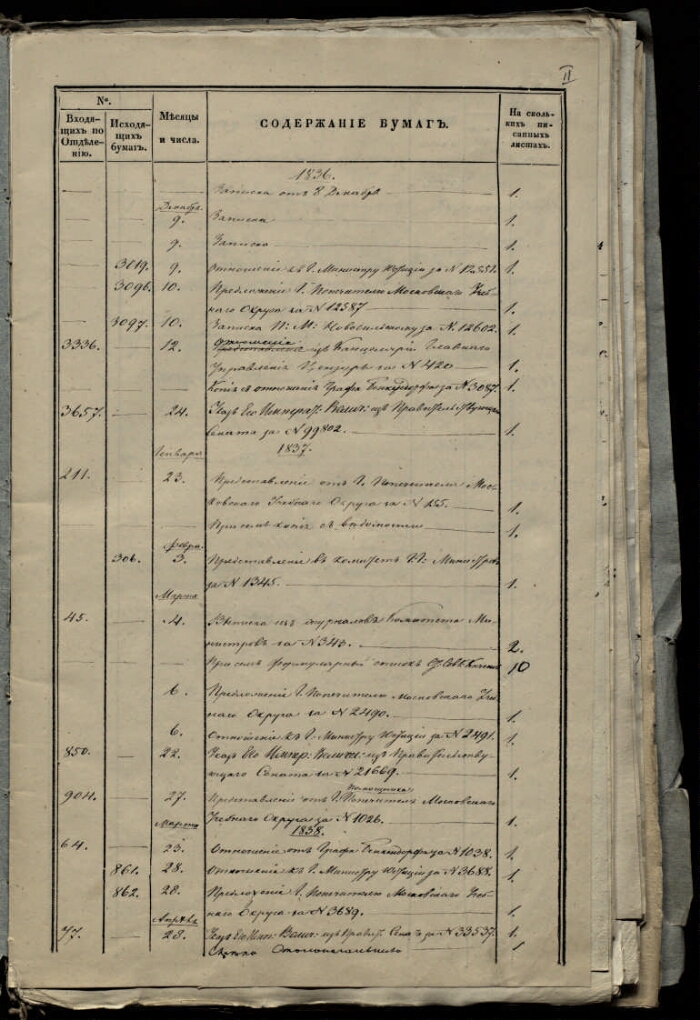 II
№.
Входя-
щихъ по
Отдѣле-
нію.
Исходя-
щихъ
бумагъ.
Мѣсяцы
и числа.
СОДЕРЖАНІЕ БУМАГЪ.
На сколь-
кихъ пи-
санныхъ
листахъ.
1836.
Записка отъ 8 Декабря 1.
Декабр.
9. Записка 1.
9. Записка 1.
3019. 9. Отношеніе къ Г. Министру Юстиціи за N 12551. 1.
3096. 10. Предложеніе Г. Попечителю Московскаго Учеб-
наго Округа за N 12587 1.
3097. 10. Записка за N. 12602. 1.
3336. 12. Отношеніе изъ Канцеляріи Главнаго
Управленія Цензуры за N 420 1.
Копія съ отношенія Графа Бенкендорфа за N 3087. 1.
3657. 24. Указъ Его Императ: Велич: изъ Правительствующ
Сената за N 99802. 1.
Генваря 1837.
211. 23. Представленіе отъ Г. Попечителя Мос-
ковскаго Учебнаго Округа за N 155. 1.
При семъ копія съ 1.
Февра.
306. 3. Представленіе въ комитетъ Г.Г. Министровъ
за N 1345. 1.
Марта
45. 4. Выписка изъ журналовъ Комитета Ми-
нистровъ за N 343. 2.
При семъ формулярный списокъ 10
6. Предложеніе Г. Попечителю Московскаго Учеб-
наго Округа за N 2490. 1.
6. Отношеніе къ Г. Министру Юстиціи за N 2491. 1.
850. 22. Указъ Его Импер: Велич: изъ Правительству-
ющаго Сената за N 21669. 1.
Помощника
904. 27. Представленіе отъ Г. Попечителя Московскаго
Учебнаго Округа за N 1026. 1.
Марта 1838.
64. 23. Отношеніе отъ Графа Бенкендорфа за N 1038. 1.
861. 28. Отношеніе къ Г. Министру Юстиціи за N 3688. 1.
862. 28. Предложеніе Г. Попечителю Московскаго Учеб-
наго Округа за N 3689. 1.
Апрѣля
77. 28. Указъ Его Импе: Велич: изъ Правит. Сената за N 33537. 1.
1